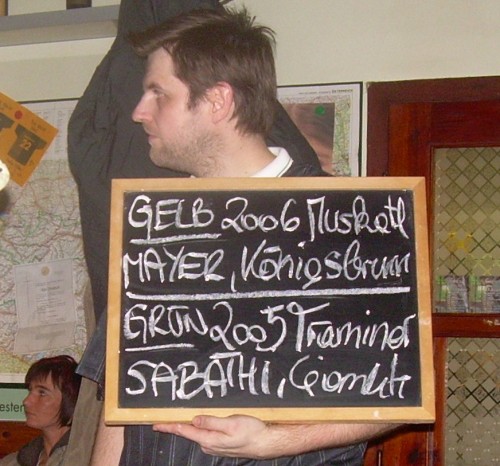 GELB 2006 Muskatl
MAYER, Königsbrunn
GRÜN 2005 Traminer
SABATHI, Gamlitz
esten